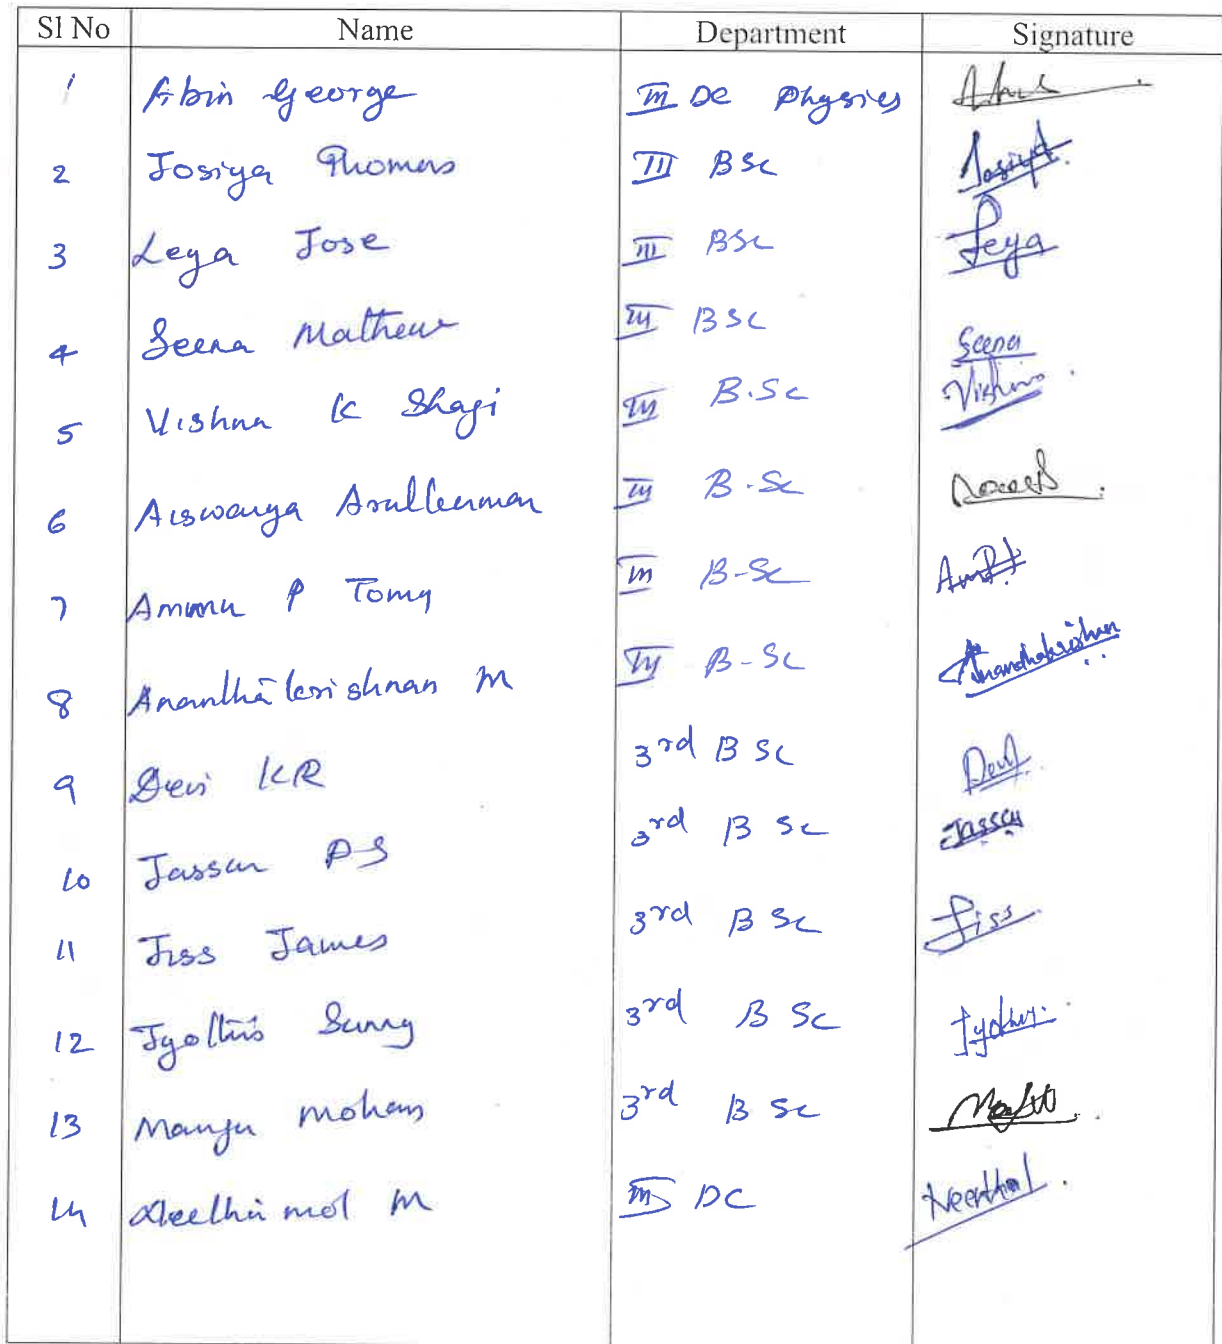 Sl No Name Department Signature
1 Abin George III DC Physics
2 Josiya Thomas III BSc Josiya
3 Leya Jose III BSc Leya
4 Seena Mathew III BSc Seena
5 Vishnu K Shaji III B.Sc Vishnu
6 Aiswarya Arulkumar III B.Sc
7 Ammu P Tomy III B-Sc
8 Ananthakrishnan M III B-Sc Ananthakrishnan
9 Devi KR 3rd B Sc Devi
10 Jassan PS 3rd B Sc Jassan
11 Jiss James 3rd B Sc Jiss
12 Jyothis Sunny 3rd B Sc Jyothis
13 Manju Mohan 3rd B Sc
14 Neethumol M III DC